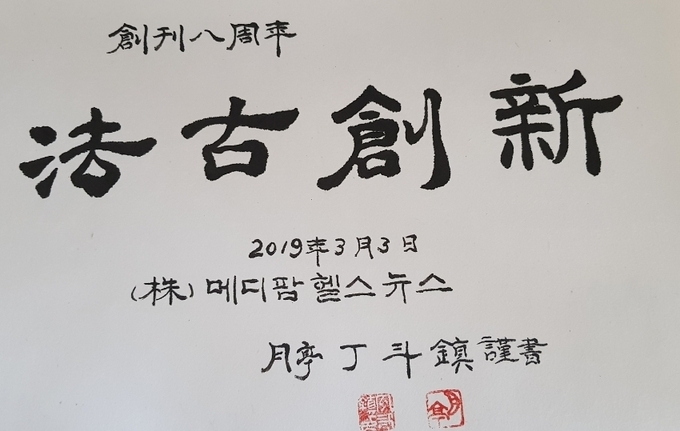 創刊八周年
法古創新
2019年3月3日
(株)메디팜헬스뉴스
月亭 丁斗鎮 謹書